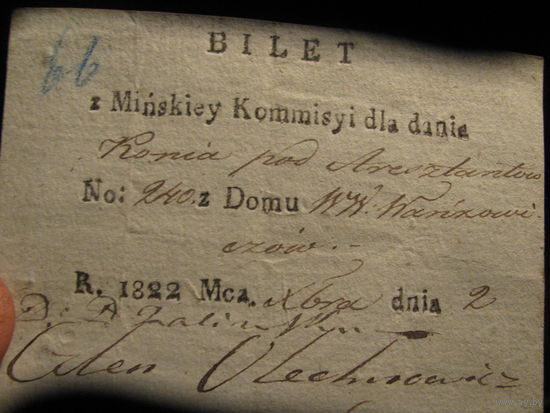 66
BILET
z Mińskiey Kommisyi dla dania
Konia pod Aresztantow
No: 240. z Domu WW. Wańkowi
czów. -
R. 1822 Mca. Xbra dnia 2
Olechnowicz